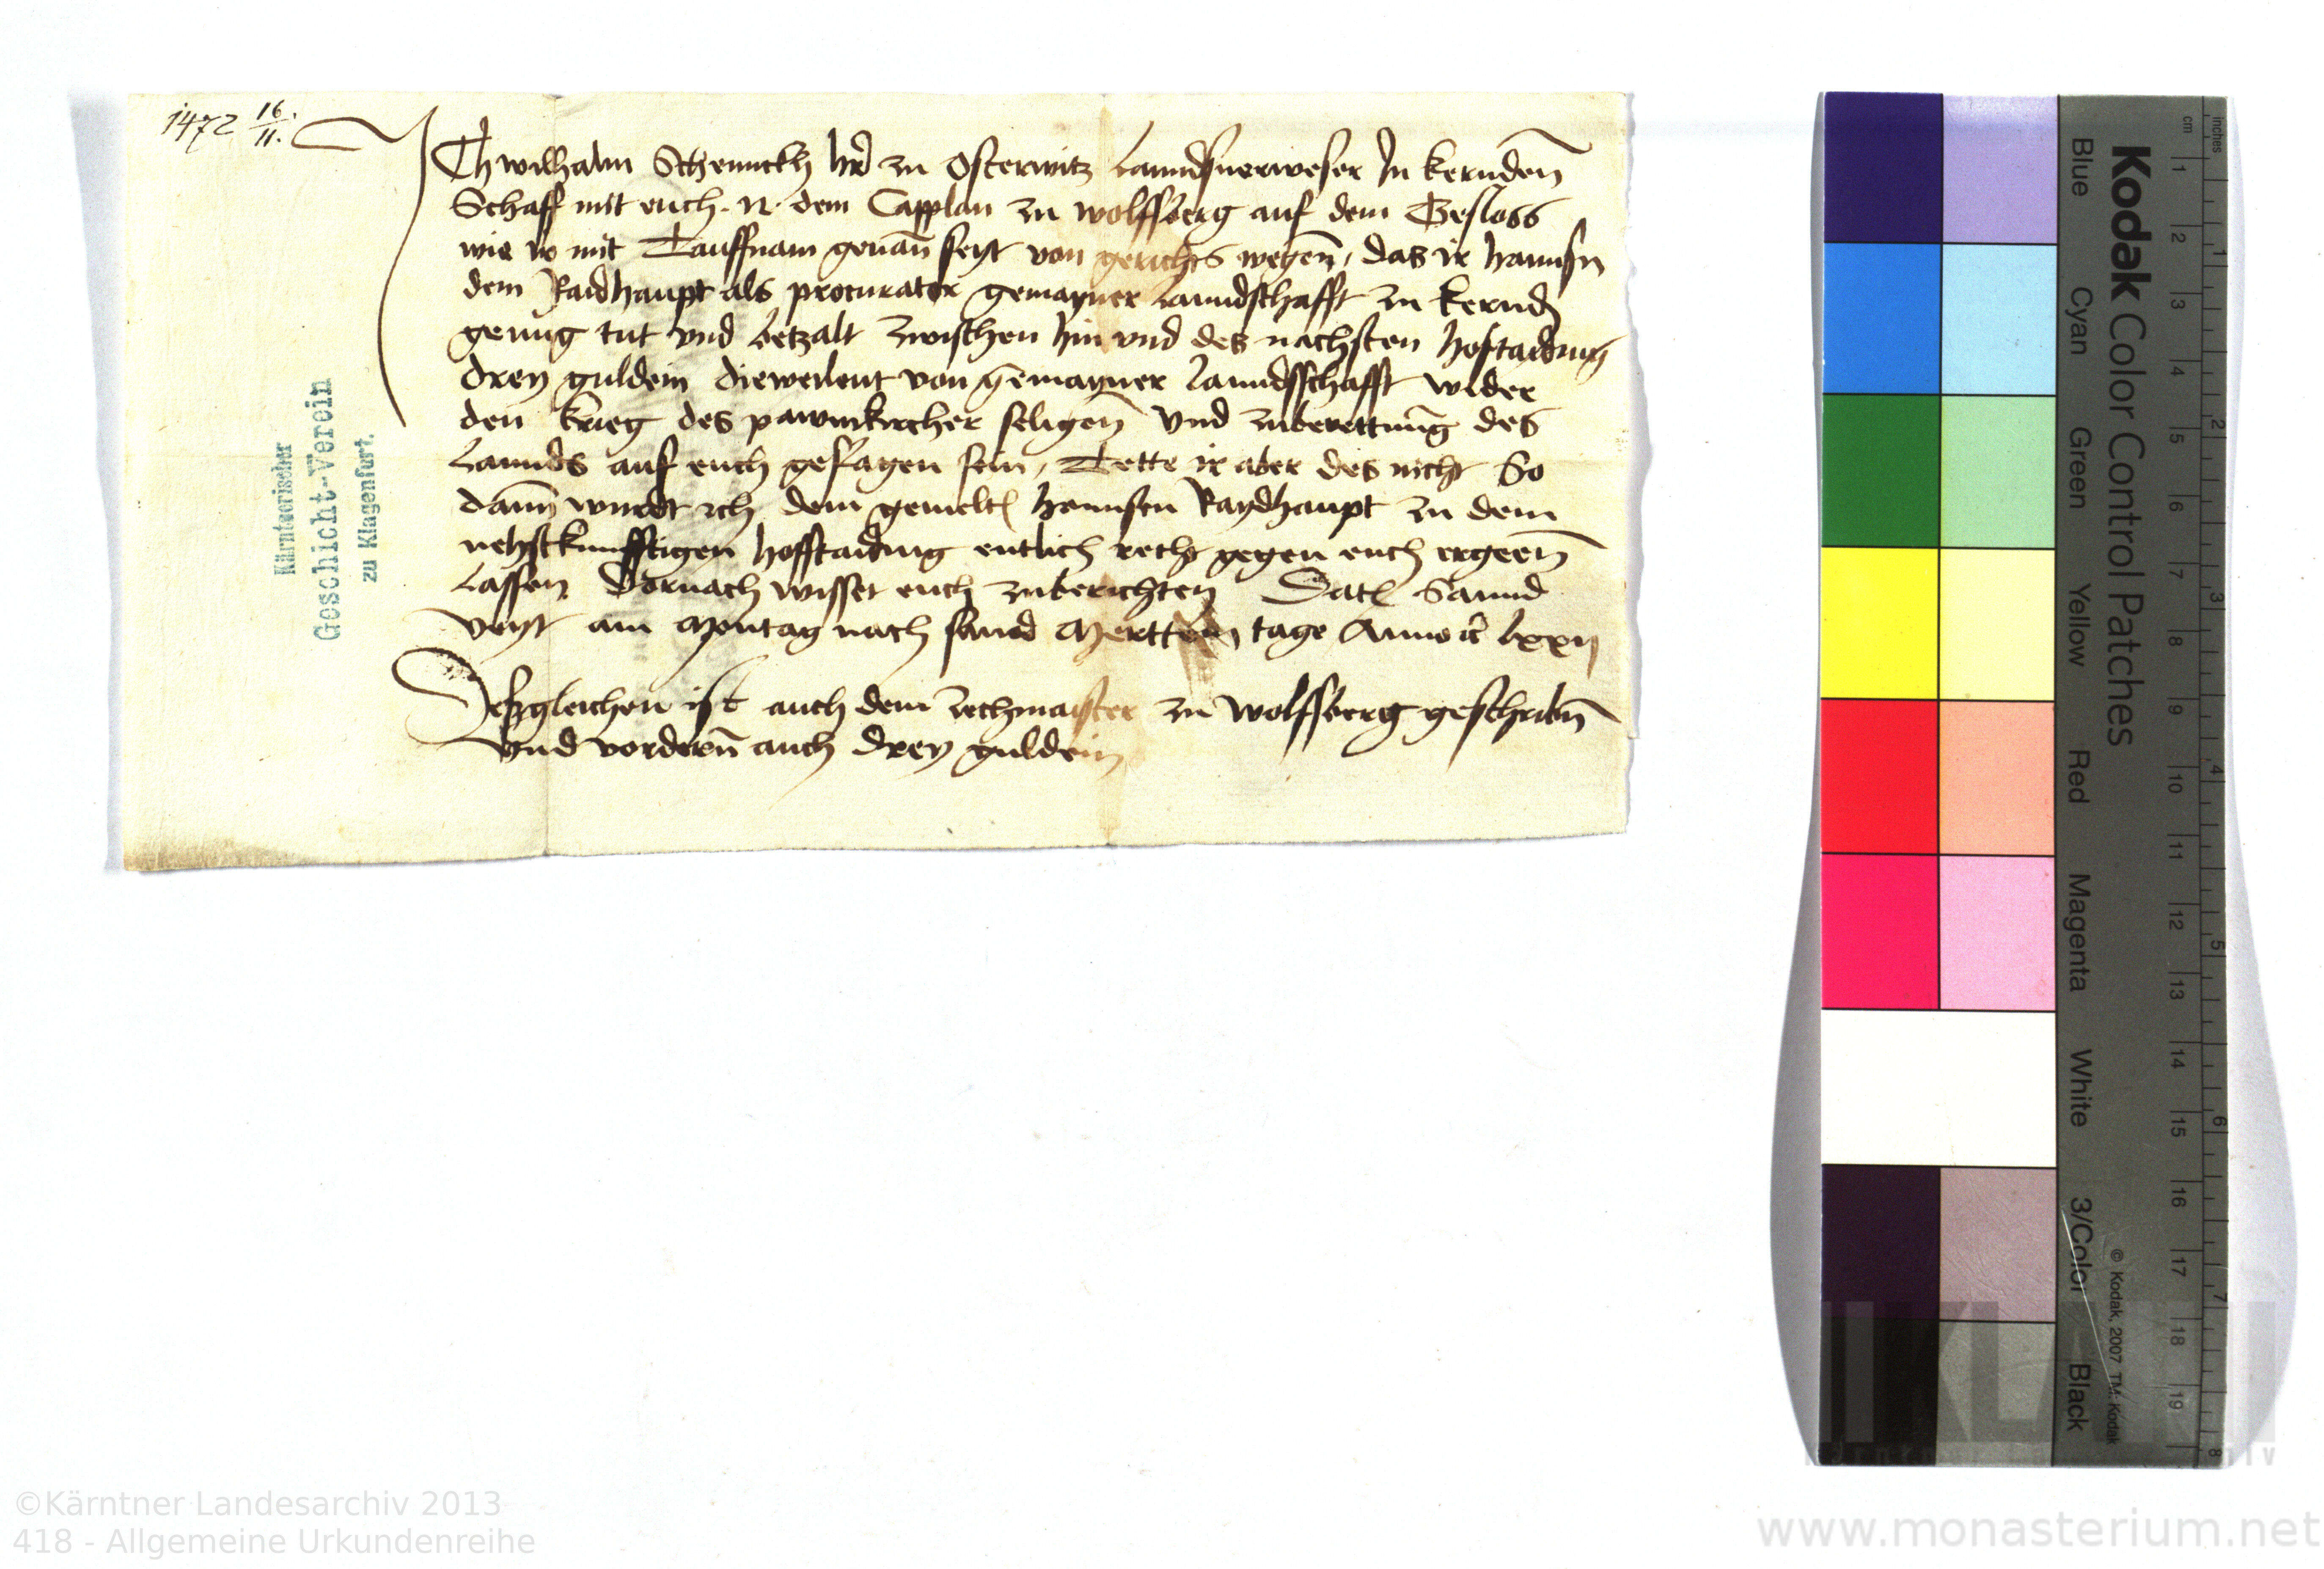 1472 16/11.
Ich wilhalm Schennckh her zu Osterwitz Lanndsuerweser In kernden
Schaff mit euch .N. dem Capplan zu wolffsberg auf dem Gesloss
wie ir mit Tauffnam genan seyt von gerichts wegen, das ir hannsn
dem Raidhaupt als procurator gemayner Lanndschafft zu kernd
genug tut vnd betzalt zwischen hin vnd des nachsten hoftaiding
drey guldein die weilent von gemayner Lanndsschafft wider
den krieg des pawmkircher seligen vnd zuberettung des
Lannds auf euch geslagen sein, Tette ir aber des nicht So
dann wurdt ich dem gemelt hannsen Raydhaupt zu dem
nehstkunfftigen hofftaiding entlich recht gegen euch ergeen
Lassen Darnach wisset euch zuberichten Dat Sannd
veyt am Montag nach sannd Merttein tage Anno lxxij
Deszgleichen ist auch dem zechmaister zu wolffsberg geschribn
vnd vordern auch drey guldein
Kärntnerischer
Geschicht-Verein
zu Klagenfurt.
Kodak Color Control Patches
Blue Cyan Green Yellow Red Magenta White 3/Color Black
© Kodak, 2007 TM: Kodak
cm 1 2 3 4 5 6 7 8 9 10 11 12 13 14 15 16 17 18 19
inches 1 2 3 4 5 6 7 8
©Kärntner Landesarchiv 2013
418 - Allgemeine Urkundenreihe
www.monasterium.net